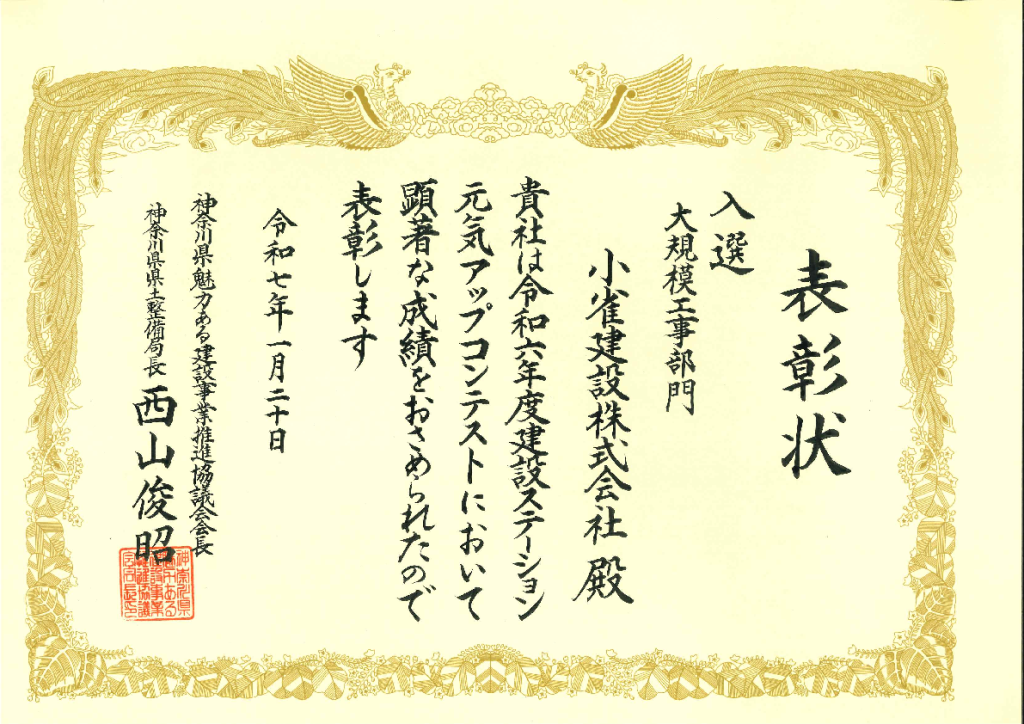 表彰状
入選
大規模工事部門
小雀建設株式会社 殿
貴社は令和六年度建設ステーション
元気アップコンテストにおいて
顕著な成績をおさめられたので
表彰します
令和七年一月二十日
神奈川県魅力ある建設事業推進協議会会長
神奈川県県土整備局長 西山俊昭
神奈川県
魅力ある
建設事業
推進協議
会会長印